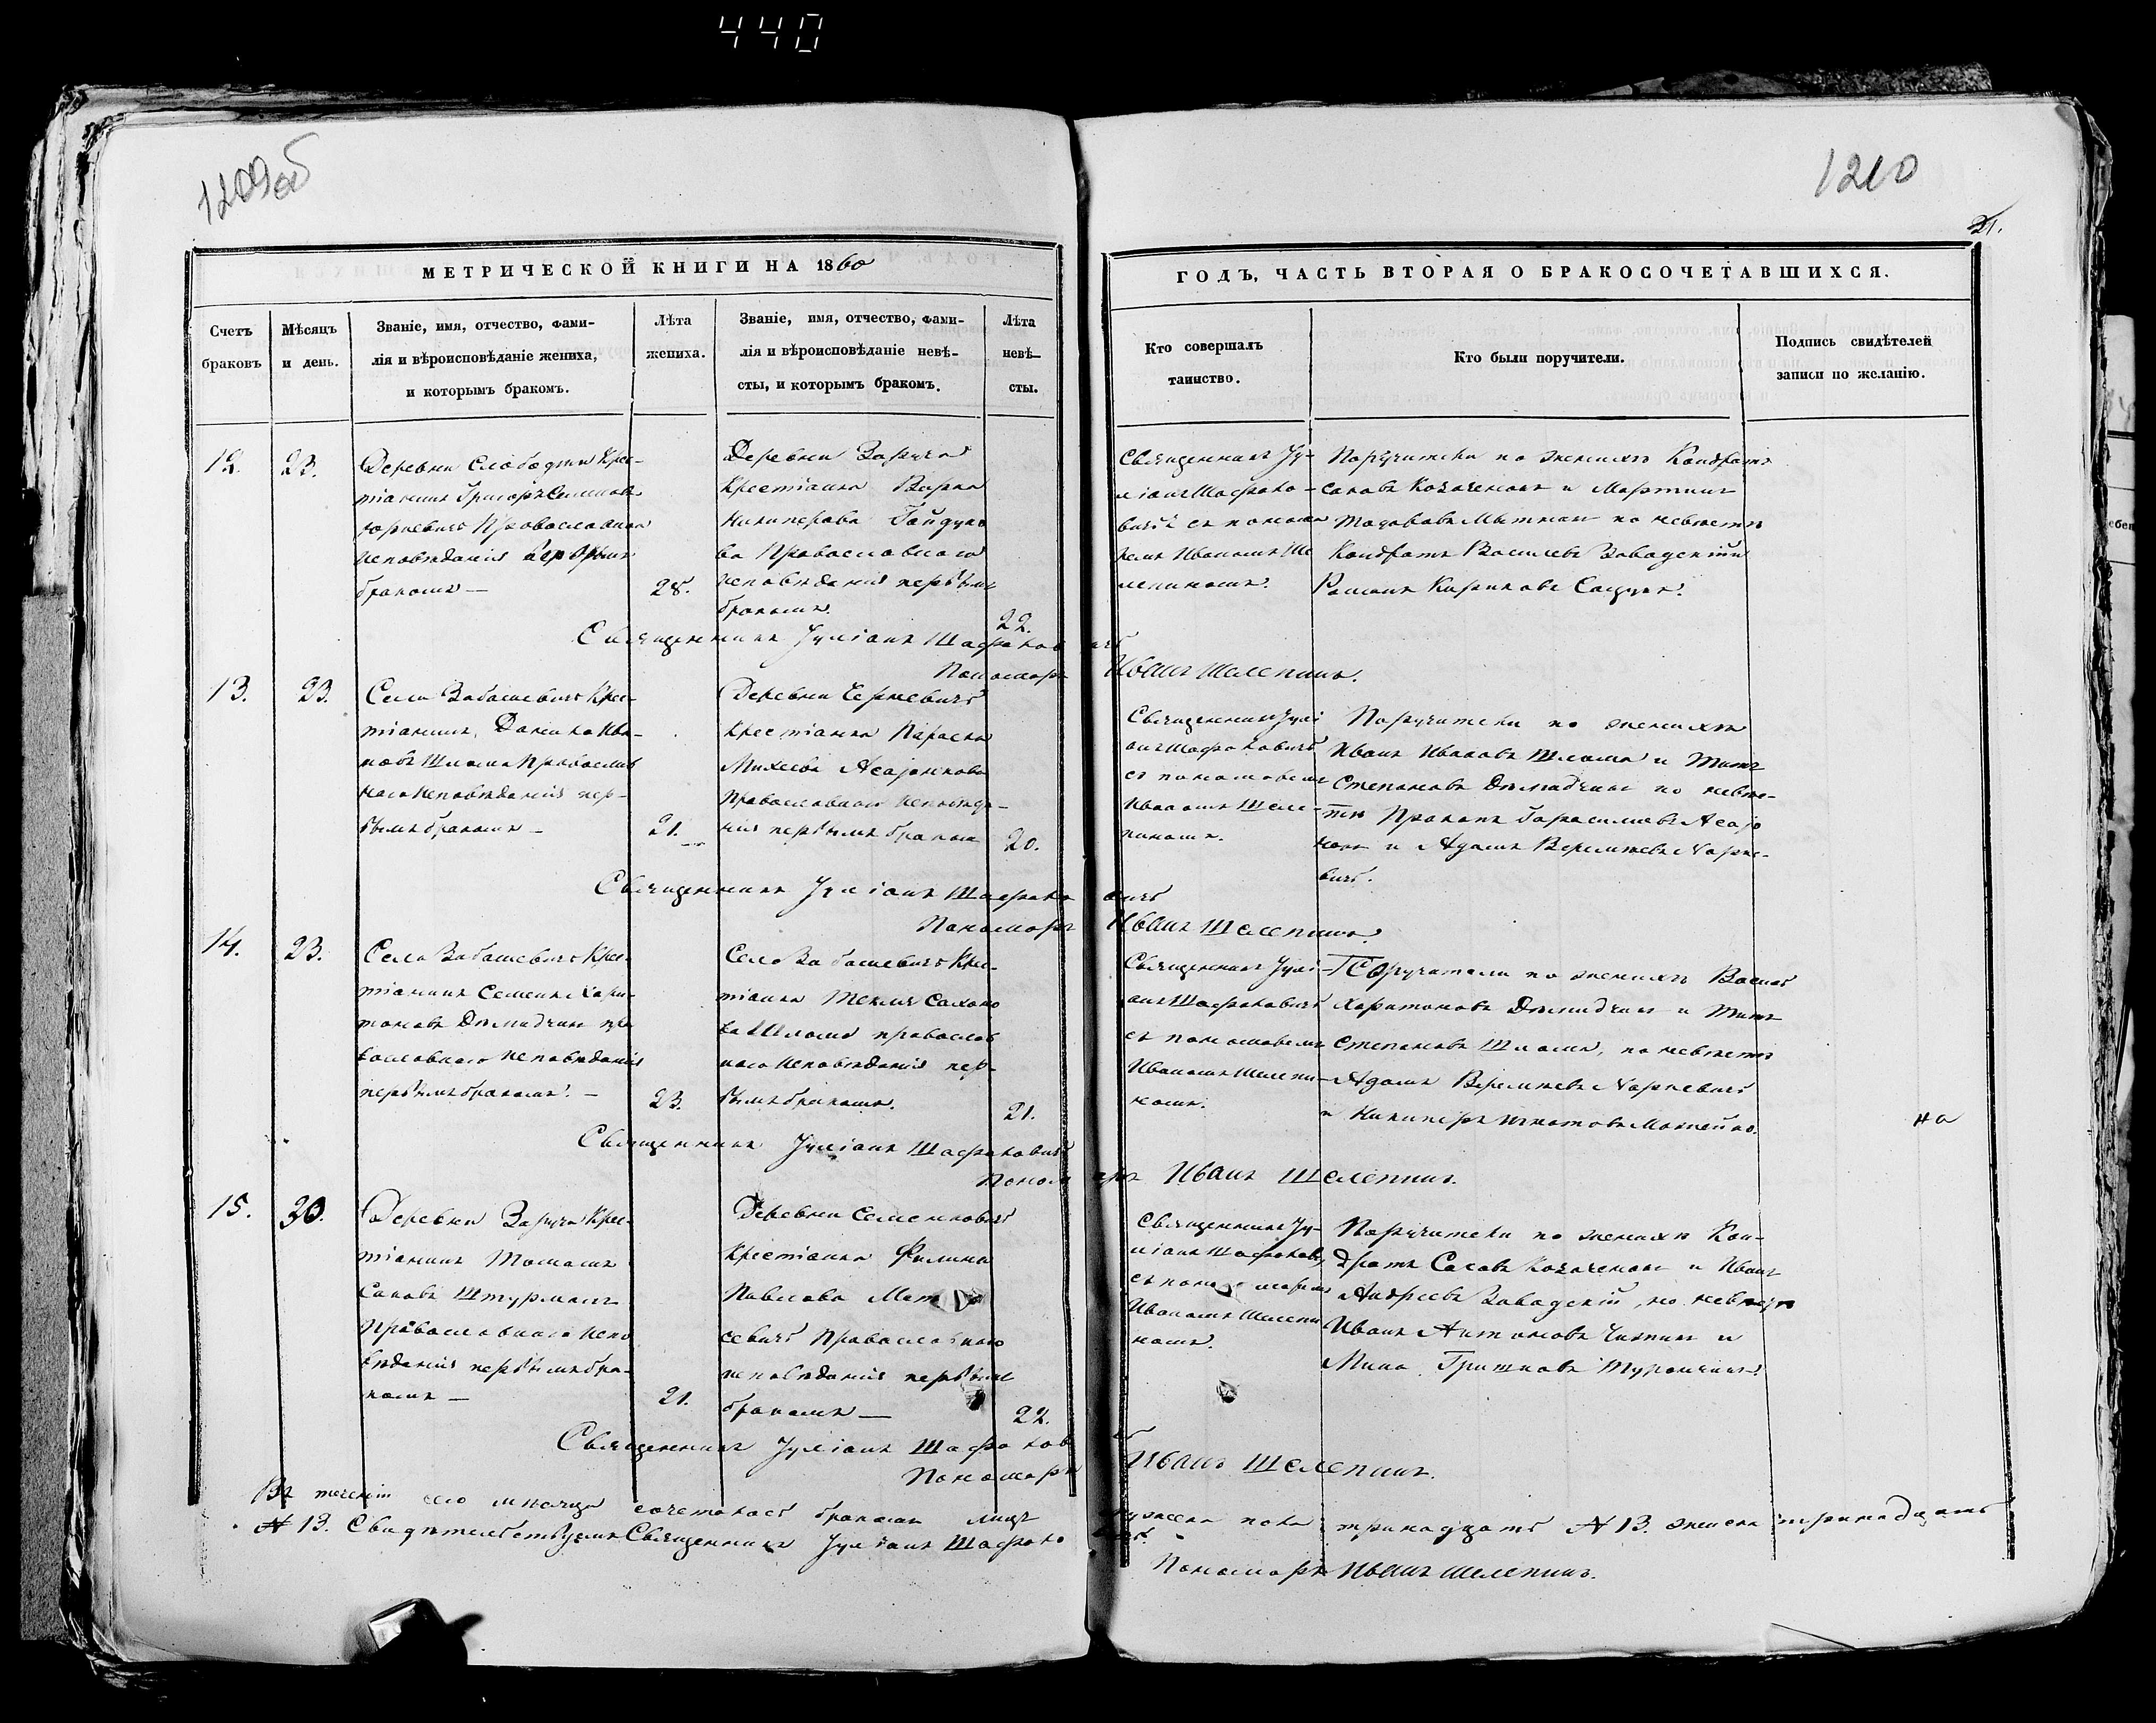 440
1209об
1210
21.
МЕТРИЧЕСКОЙ КНИГИ НА 1860
ГОДЪ, ЧАСТЬ ВТОРАЯ О БРАКОСОЧЕТАВШИХСЯ.
Счетъ браковъ
Мѣсяцъ и день.
Званіе, имя, отчество, фами-
лія и вѣроисповѣданіе жениха,
и которымъ бракомъ.
Лѣта жениха.
Званіе, имя, отчество, фами-
лія и вѣроисповѣданіе невѣ-
сты, и которымъ бракомъ.
Лѣта невѣ-
сты.
Кто совершалъ
таинство.
Кто были поручители.
Подпись свидѣтелей
записи по желанію.
12.
23.
Деревни Слободки Крес-
тіанинъ Григорь
Юркевичъ Православнаго
исповѣданія первымъ
бракомъ —
28.
Деревни Заруча
Крестіанка Варка
Никиперова Гайдуко
ва Православнаго
исповѣданія первымъ
бракомъ.
22.
Священникъ Ју-
ліанъ Шафрано-
вичъ съ понома
ремъ Иваномъ Ше
лепиномъ.
Поручители по женихѣ Кондратъ
Саковъ Козаченокъ и Мартинъ
по невѣстѣ
Кондратъ Василевъ Завадскій и
Романъ Кириковъ
Священникъ Јуліанъ Шафрановичъ
Пономарь Иванъ Шелепинъ.
13.
23.
Села Забашевичъ Крес-
тіанинъ, Данило Ива-
новъ Шлома Православ
наго исповѣданія пер-
вымъ бракомъ —
21.
Деревни Черневичъ
Крестіанка Параска
Михеева
Православнаго исповѣда-
нія первымъ браком
20.
Священникъ Јулі
анъ Шафрановичъ
съ пономаремъ
Иваномъ Шеле-
пиномъ.
Поручители по женихѣ
Иванъ Ивановъ Шлома и Титъ
Степановъ Демидчикъ по невѣс-
тѣ
и Адамъ Веремѣевъ Харке-
вичъ.
Священникъ Јуліанъ Шафрановичъ
Пономарь Иванъ Шелепинъ.
14.
23.
Села Забашевичъ Крес-
тіанинъ Семенъ Хари-
тоновъ Демидчикъ пра
вославнаго исповѣданія
первымъ бракомъ. —
23.
Села Забашевичъ Крес-
тіанка Текля
ва Шлома православ
наго исповѣданія пер-
вымъ бракомъ.
21.
Священникъ Јулі-
анъ Шафрановичъ
съ пономаремъ
Иваномъ Шелепи-
номъ.
Поручители по женихѣ
Харитоновъ Демидчикъ и Титъ
Степановъ Шлома, по невѣстѣ
Адамъ Веремѣевъ Харкевичъ
и Никиперъ Игнатовъ
на
Священникъ Јуліанъ Шафрановичъ
Пономарь Иванъ Шелепинъ.
15.
30.
Деревни Заруча Крес-
тіанинъ Томашъ
Саковъ Штурмакъ
Православнаго испо
вѣданія первымъ бра-
комъ —
21.
Деревни Семенковичъ
Крестіанка
Павлова
севичъ Православнаго
исповѣданія первымъ
бракомъ —
22.
Священникъ Ју-
ліанъ Шафранов
съ пономаремъ
Иваномъ Шелепи
номъ.
Поручители по женихѣ Кон-
дратъ Саковъ Козаченокъ и Иванъ
Андреевъ Завадскій, по невѣстѣ
Иванъ Антоновъ и
Мина
Священникъ Јуліанъ Шафрановъ
Пономарь Иванъ Шелепинъ.
Въ теченіи сего мѣсяца сочеталось бракомъ лицъ мужеска пола тринадцать № 13. женска тринадцать
№ 13. Свидѣтельствуемъ Священникъ Јуліанъ Шафрановичъ.
Пономарь Иванъ Шелепинъ.